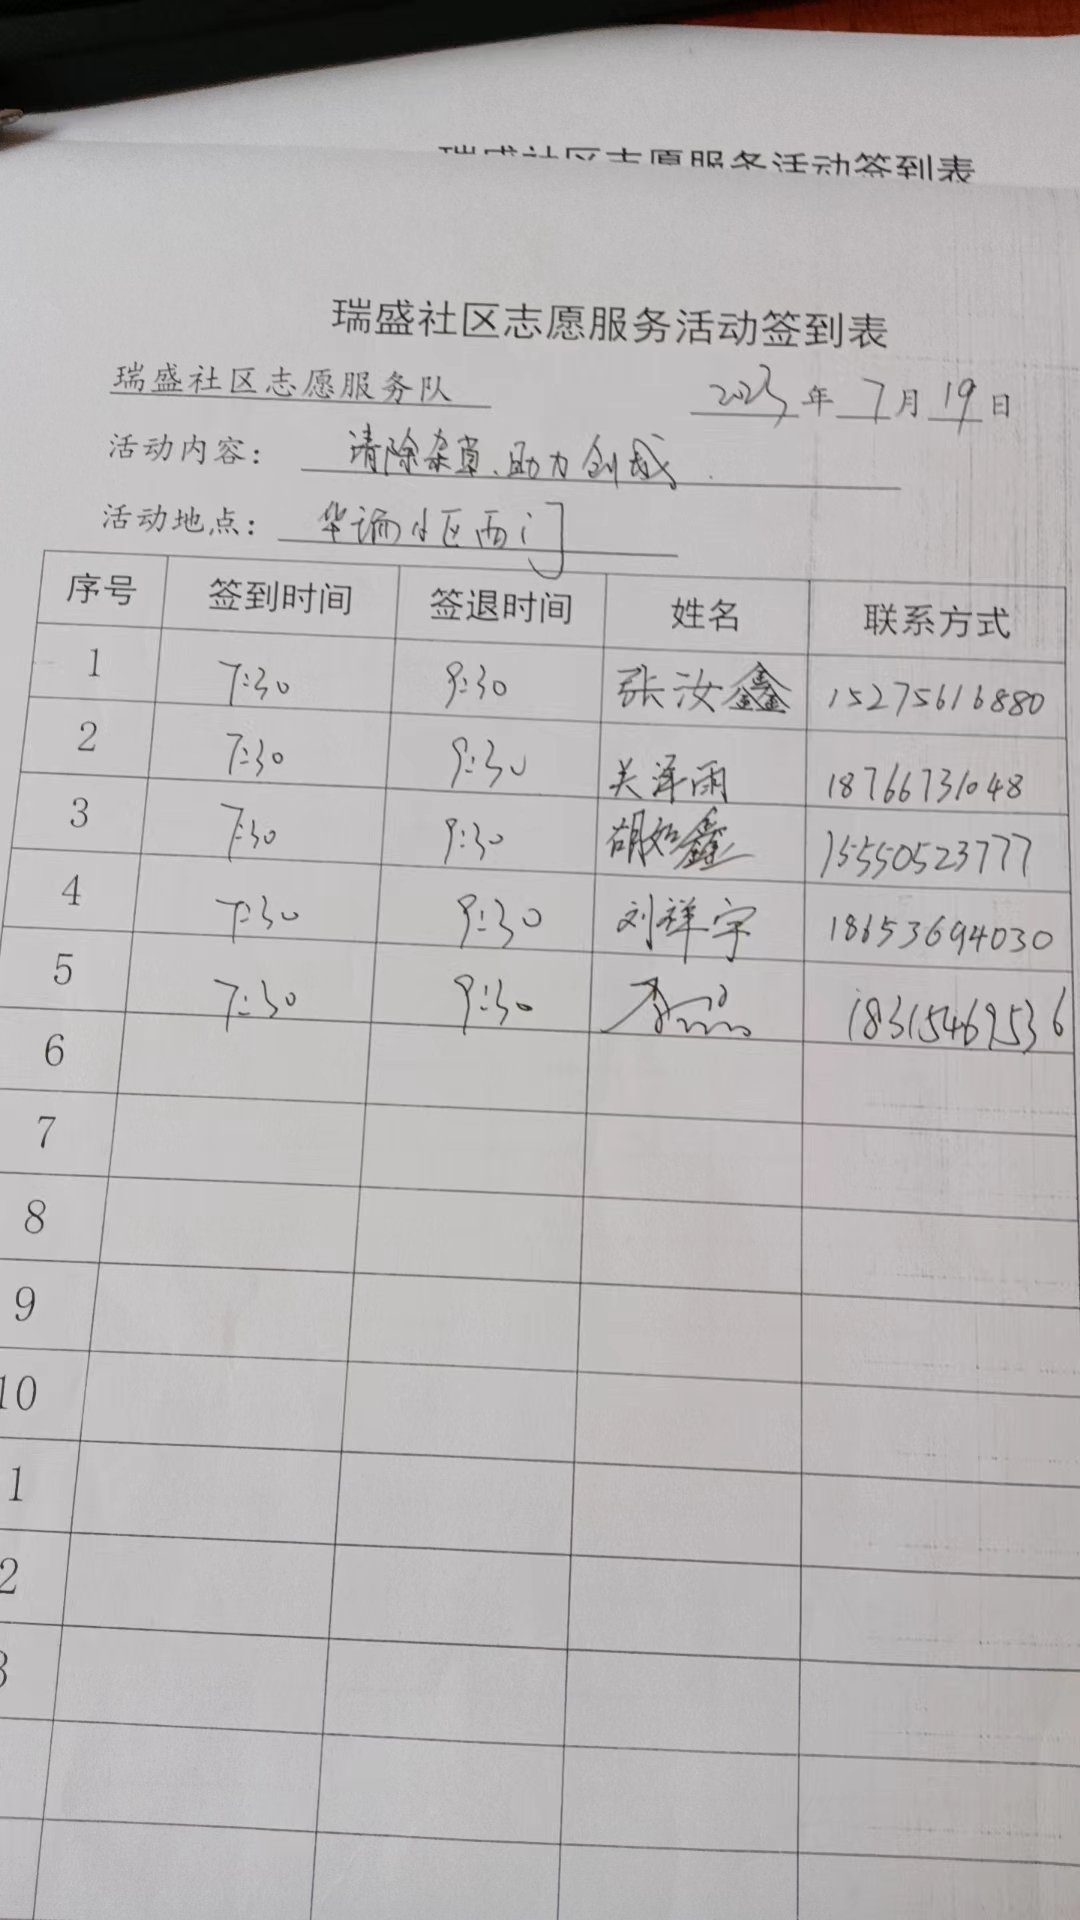 瑞盛社区志愿服务活动签到表
瑞盛社区志愿服务活动签到表
瑞盛社区志愿服务队 2023年7月19日
活动内容: 清除杂草、助力创城.
活动地点: 华谝小区西门
序号 签到时间 签退时间 姓名 联系方式
1 7:30 9:30 张汝鑫 15275616880
2 7:30 9:30 关泽雨 18766731048
3 7:30 9:30 胡如鑫 15550523777
4 7:30 9:30 刘祥宇 18653694030
5 7:30 9:30 李 18315469536
6
7
8
9
10
1
2
3